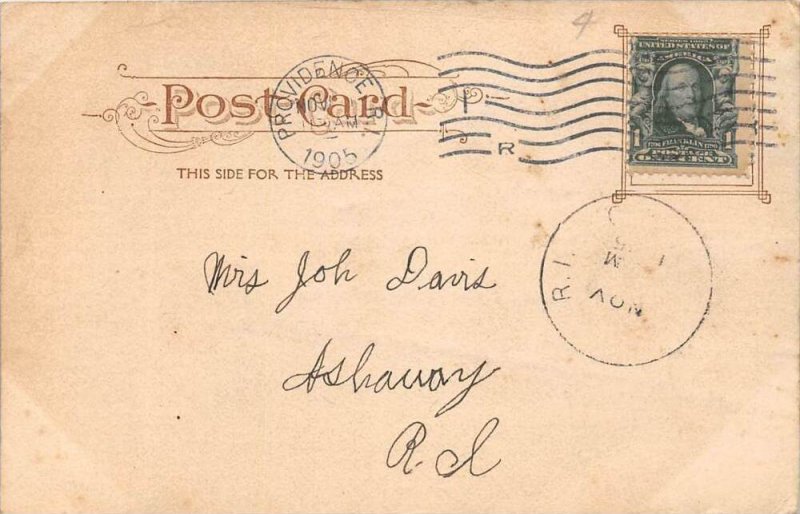 4
Post Card
THIS SIDE FOR THE ADDRESS
PROVIDENCE, R.I.
NOV
AM
1905
R
UNITED STATES OF
AMERICA
FRANKLIN
1 POSTAGE
ONE CENT
R.I.
NOV
M
Mrs Joh Davis
Ashaway
R.I